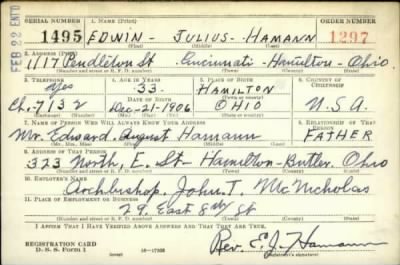 SERIAL NUMBER 1. NAME (Print) ORDER NUMBER
1495 EDWIN - JULIUS - HAMANN 1297
(First) (Middle) (Last)
FEB 22 ENT'D
2. ADDRESS (Print)
1117 Pendleton St Cincinnati - Hamilton - Ohio.
(Number and street or R. F. D. number) (Town) (County) (State)
3. TELEPHONE 4. AGE IN YEARS 5. PLACE OF BIRTH 6. COUNTRY OF CITIZENSHIP
Yes 33. HAMILTON
DATE OF BIRTH (Town or county)
Ch. 7132 Dec-21-1906 OHIO U.S.A.
(Exchange) (Number) (Mo.) (Day) (Yr.) (State or country)
7. NAME OF PERSON WHO WILL ALWAYS KNOW YOUR ADDRESS 8. RELATIONSHIP OF THAT PERSON
Mr. Edward August Hamann FATHER
(Mr., Mrs., Miss) (First) (Middle) (Last)
9. ADDRESS OF THAT PERSON
323 North, E. St - Hamilton - Butler. Ohio
(Number and street or R. F. D. number) (Town) (County) (State)
10. EMPLOYER'S NAME
Archbishop. John. T. McNicholas
11. PLACE OF EMPLOYMENT OR BUSINESS
29. East 8th St
(Number and street or R. F. D. number) (Town) (County) (State)
I AFFIRM THAT I HAVE VERIFIED ABOVE ANSWERS AND THAT THEY ARE TRUE.
REGISTRATION CARD Rev. E. J. Hamann
D. S. S. Form 1 (over) 16-17105 (Registrant's signature)